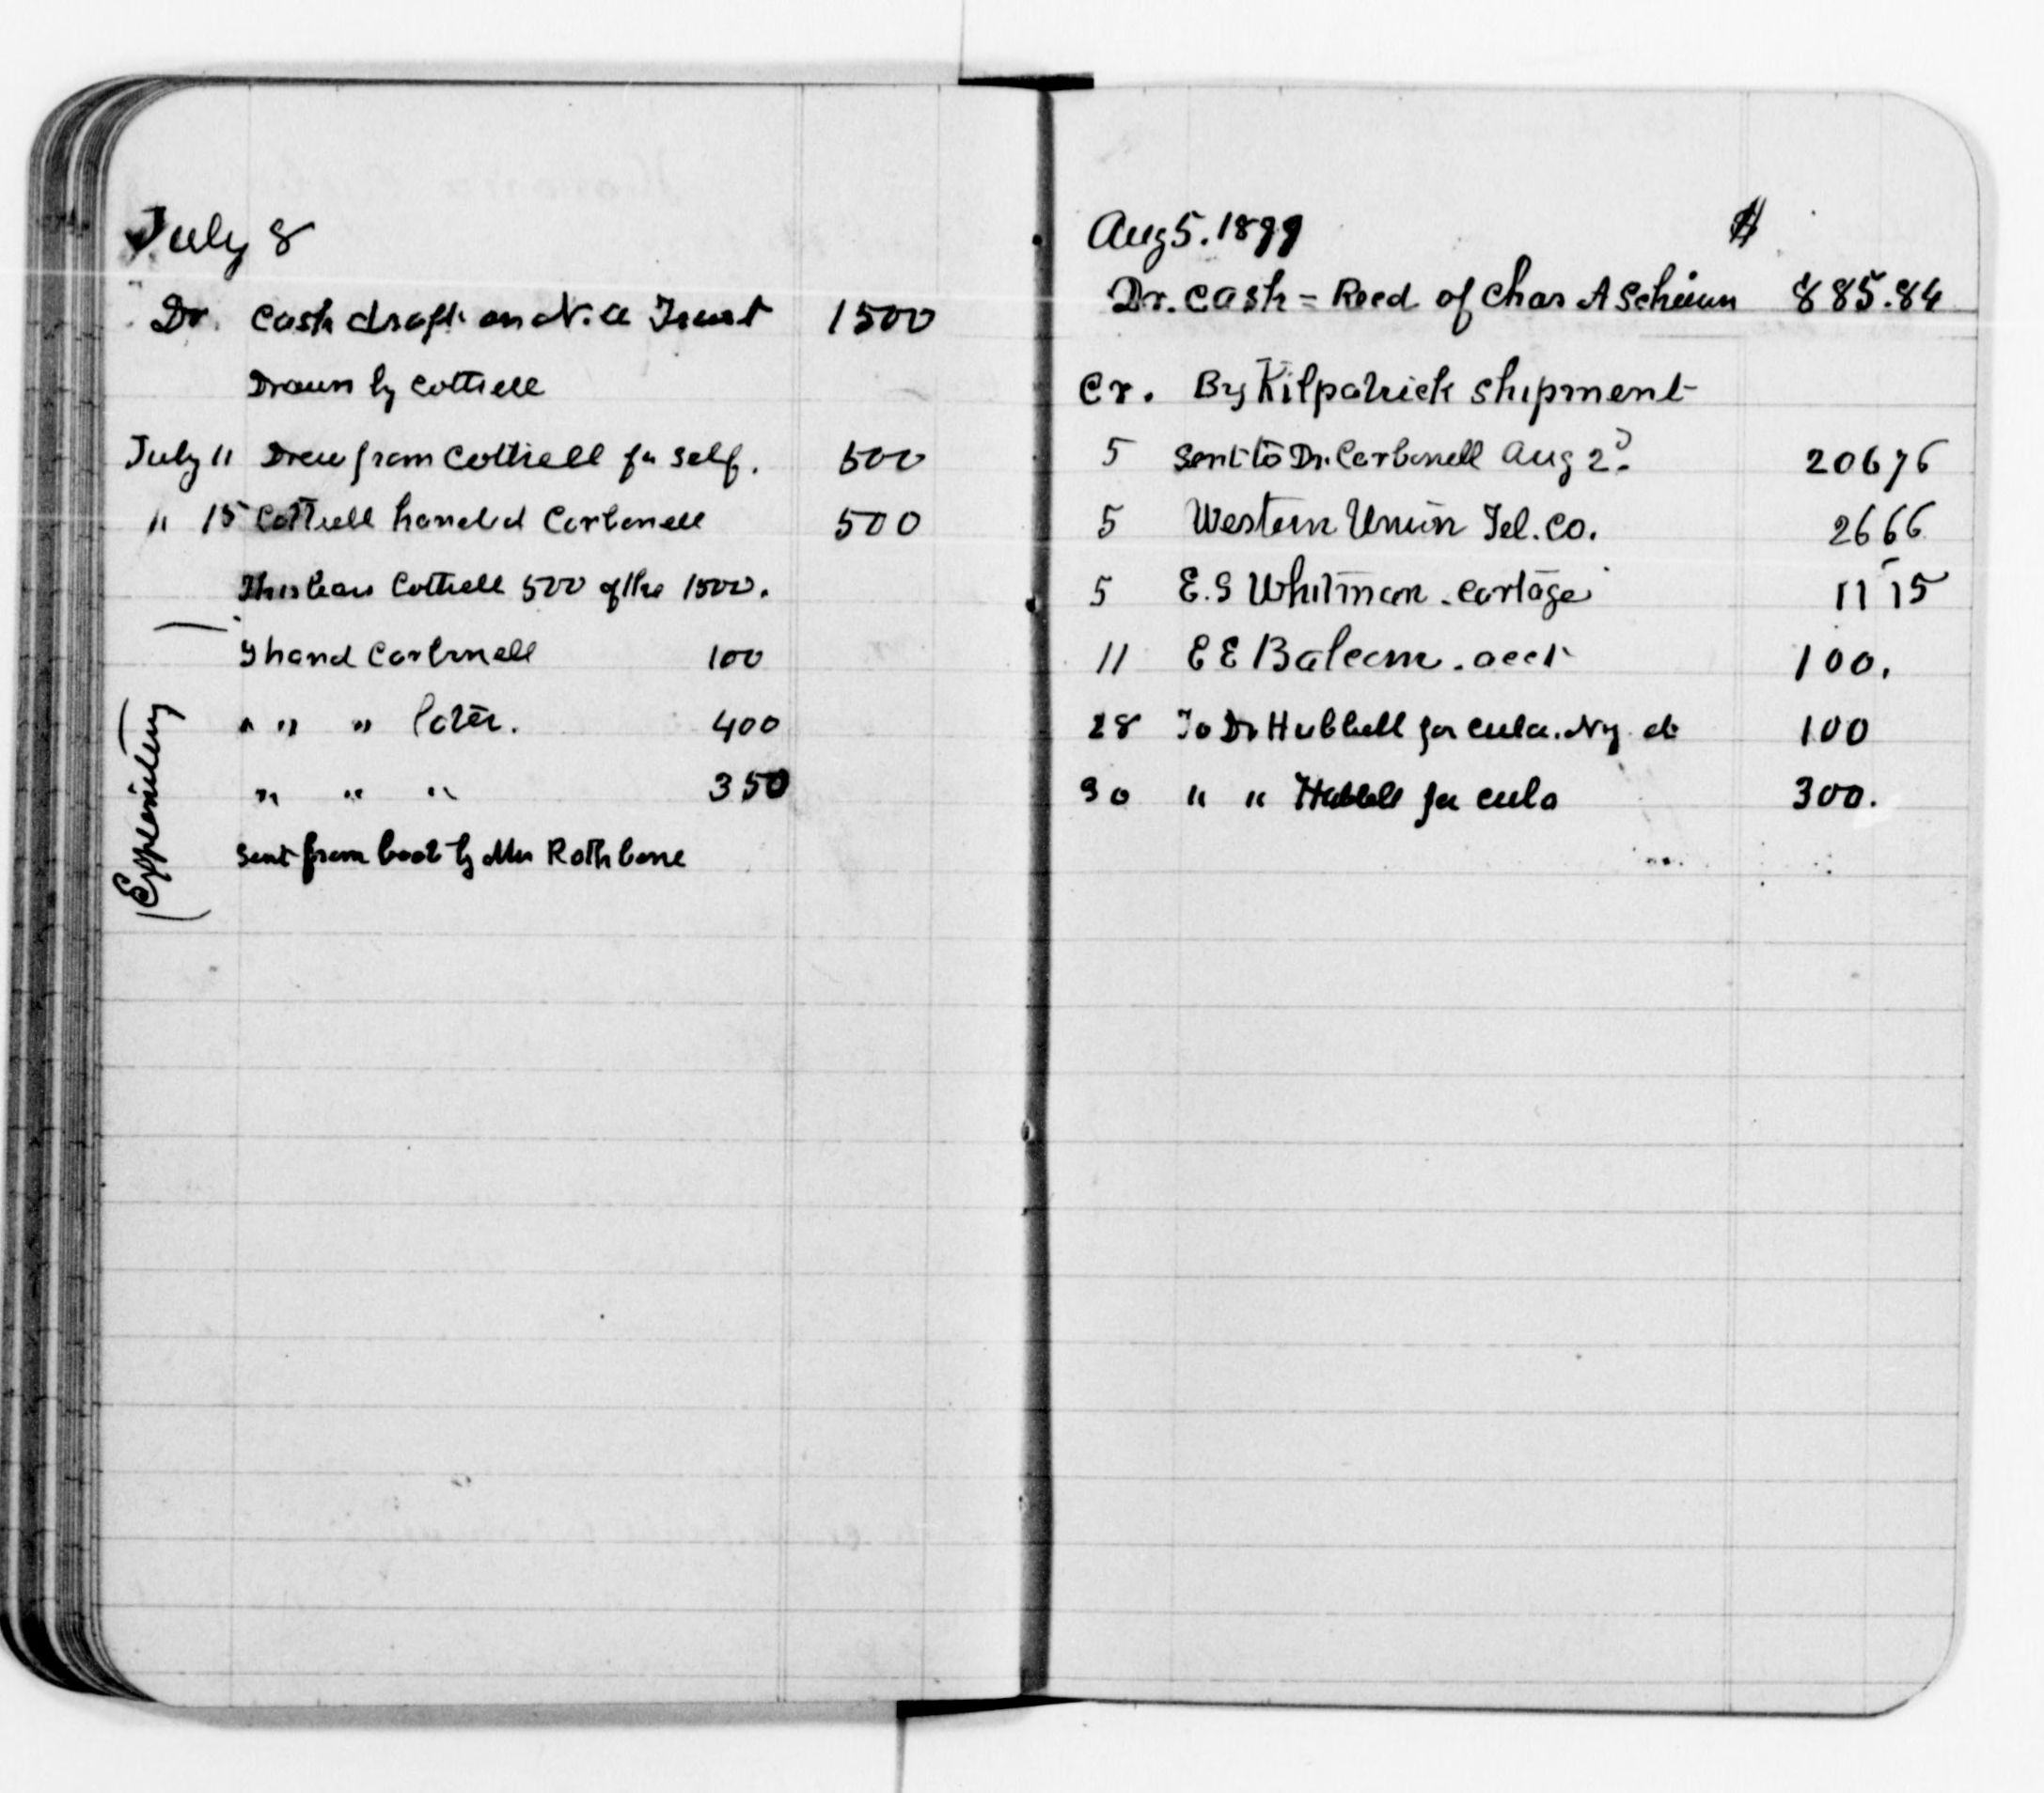 July 8
Dr. Cash draft on N. A Trust 1500
Drawn by Cottrell
July 11 Drew from Cottrell for self. 500
" 15 Cottrell handed Carbonell 500
This leaves Cottrell 500 of the 1500.
I hand Carbonell 100
" " " later. 400
" " " 350
sent from boat by Mr Rathbone
Aug 5. 1899 $
Dr. Cash = Recd of Chas A Schieren 885.84
Cr. By Kilpatrick shipment
5 Sent to Dr. Carbonell Aug 2d. 206 76
5 Western Union Tel. Co. 26 66
5 E. S Whitman. cartage 11 15
11 E E Balcom. acct 100.
28 To Dr Hubbell for Cuba. Ny. 100
30 " " Hubbell for Cuba 300.